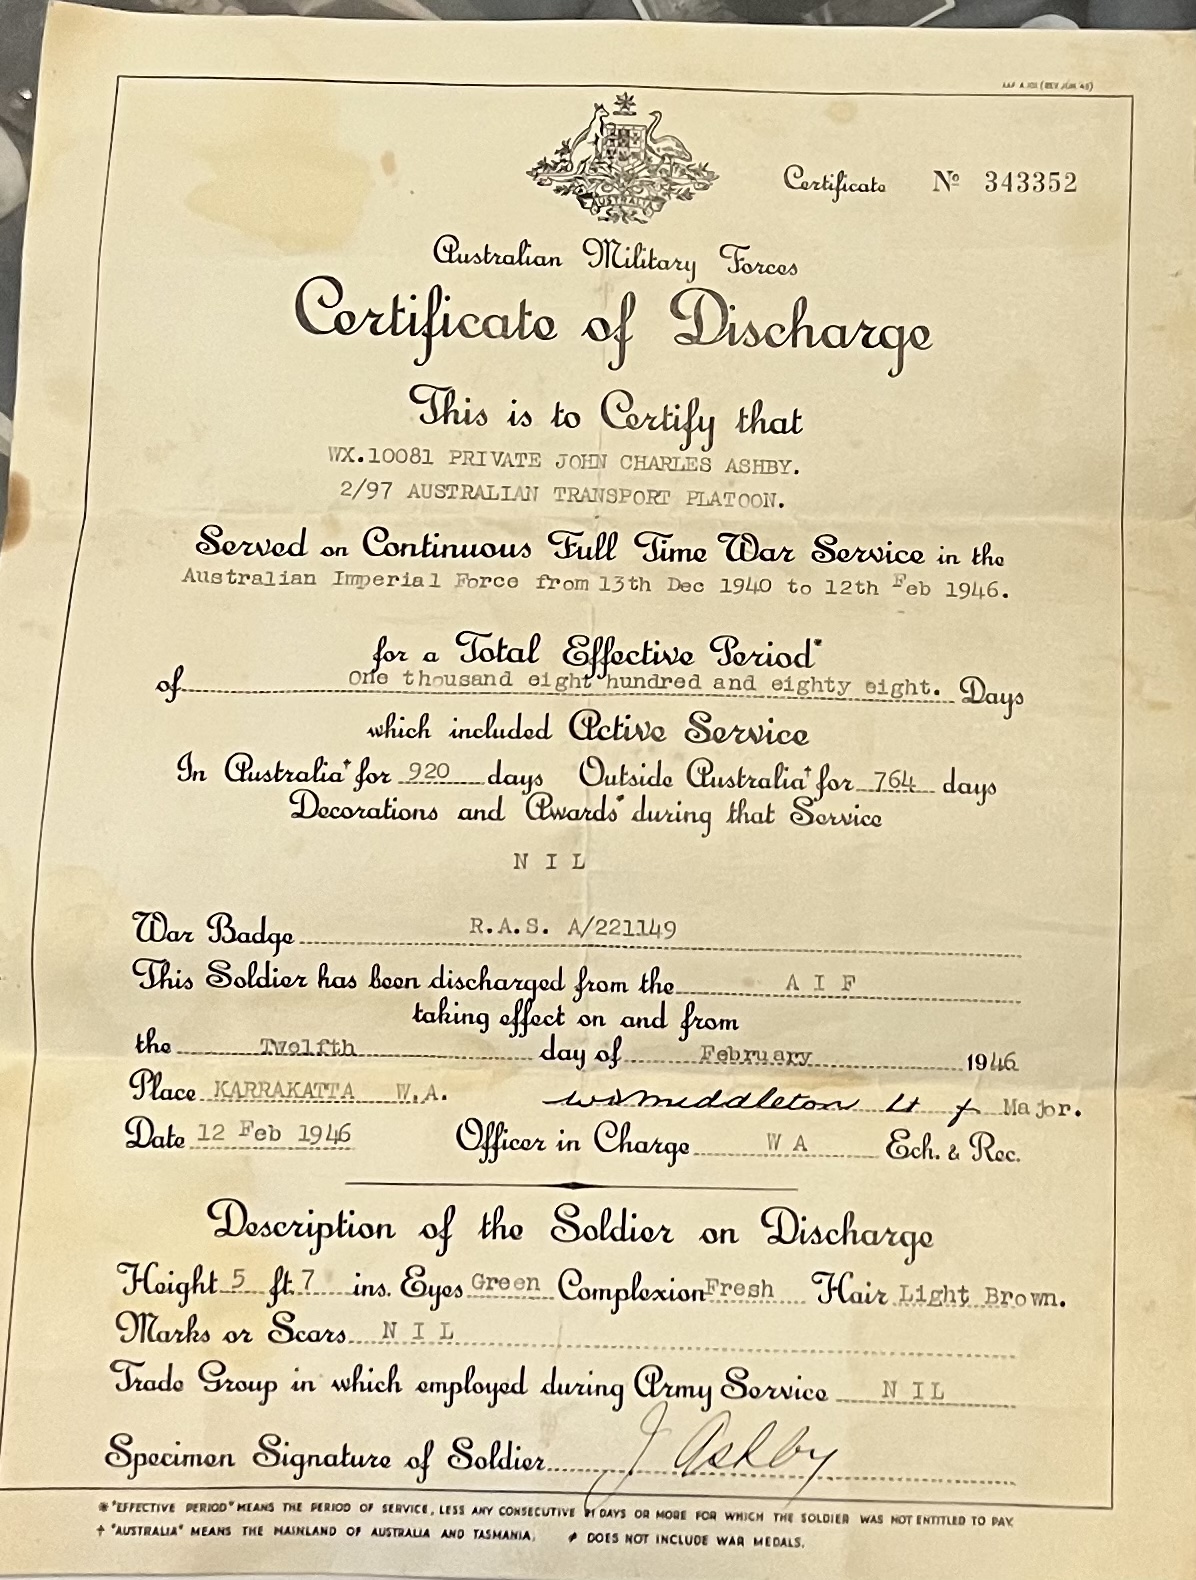 AUSTRALIA
Certificate No 343352
Australian Military Forces
Certificate of Discharge
This is to Certify that
WX.10081 PRIVATE JOHN CHARLES ASHBY.
2/97 AUSTRALIAN TRANSPORT PLATOON.
Served on Continuous Full Time War Service in the
Australian Imperial Force from 13th Dec 1940 to 12th Feb 1946.
for a Total Effective Period*
of One thousand eight hundred and eighty eight. Days
which included Active Service
In Australia† for 920 days Outside Australia† for 764 days
Decorations and Awards≠ during that Service
N I L
War Badge R.A.S. A/221149
This Soldier has been discharged from the A I F
taking effect on and from
the Twelfth day of February 1946
Place KARRAKATTA W.A. Middleton Lt f Major.
Date 12 Feb 1946 Officer in Charge W A Ech. & Rec.
Description of the Soldier on Discharge
Height 5 ft. 7 ins. Eyes Green Complexion Fresh Hair Light Brown.
Marks or Scars N I L
Trade Group in which employed during Army Service N I L
Specimen Signature of Soldier J Ashby
* "EFFECTIVE PERIOD" MEANS THE PERIOD OF SERVICE, LESS ANY CONSECUTIVE 21 DAYS OR MORE FOR WHICH THE SOLDIER WAS NOT ENTITLED TO PAY.
† "AUSTRALIA" MEANS THE MAINLAND OF AUSTRALIA AND TASMANIA. ≠ DOES NOT INCLUDE WAR MEDALS.